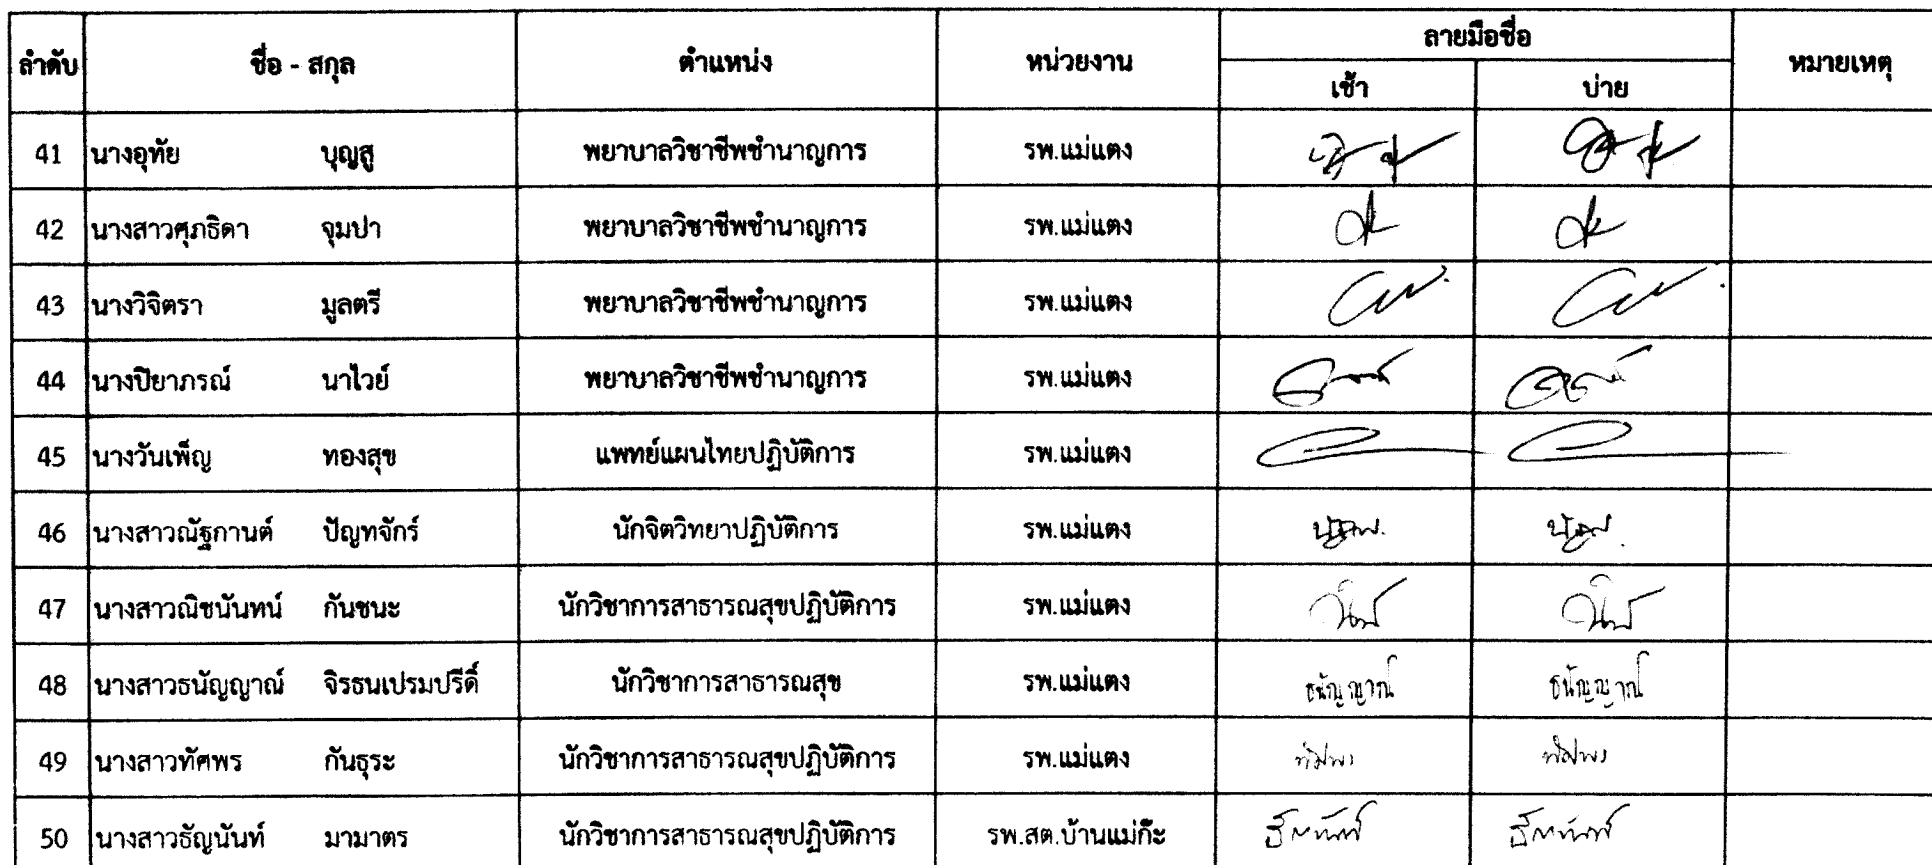 ลำดับ ชื่อ - สกุล ตำแหน่ง หน่วยงาน ลายมือชื่อ หมายเหตุ
เช้า บ่าย
41 นางอุทัย บุญสู พยาบาลวิชาชีพชำนาญการ รพ.แม่แตง
42 นางสาวศุภธิดา จุมปา พยาบาลวิชาชีพชำนาญการ รพ.แม่แตง
43 นางวิจิตรา มูลตรี พยาบาลวิชาชีพชำนาญการ รพ.แม่แตง
44 นางปิยาภรณ์ นาไวย์ พยาบาลวิชาชีพชำนาญการ รพ.แม่แตง
45 นางวันเพ็ญ ทองสุข แพทย์แผนไทยปฏิบัติการ รพ.แม่แตง
46 นางสาวณัฐกานต์ ปัญทจักร์ นักจิตวิทยาปฏิบัติการ รพ.แม่แตง
47 นางสาวณิชนันทน์ กันชนะ นักวิชาการสาธารณสุขปฏิบัติการ รพ.แม่แตง
48 นางสาวธนัญญาณ์ จิรธนเปรมปรีดิ์ นักวิชาการสาธารณสุข รพ.แม่แตง ธนัญญาณ์ ธนัญญาณ์
49 นางสาวทัศพร กันธุระ นักวิชาการสาธารณสุขปฏิบัติการ รพ.แม่แตง ทัศพร ทัศพร
50 นางสาวธัญนันท์ มามาตร นักวิชาการสาธารณสุขปฏิบัติการ รพ.สต.บ้านแม่ก๊ะ